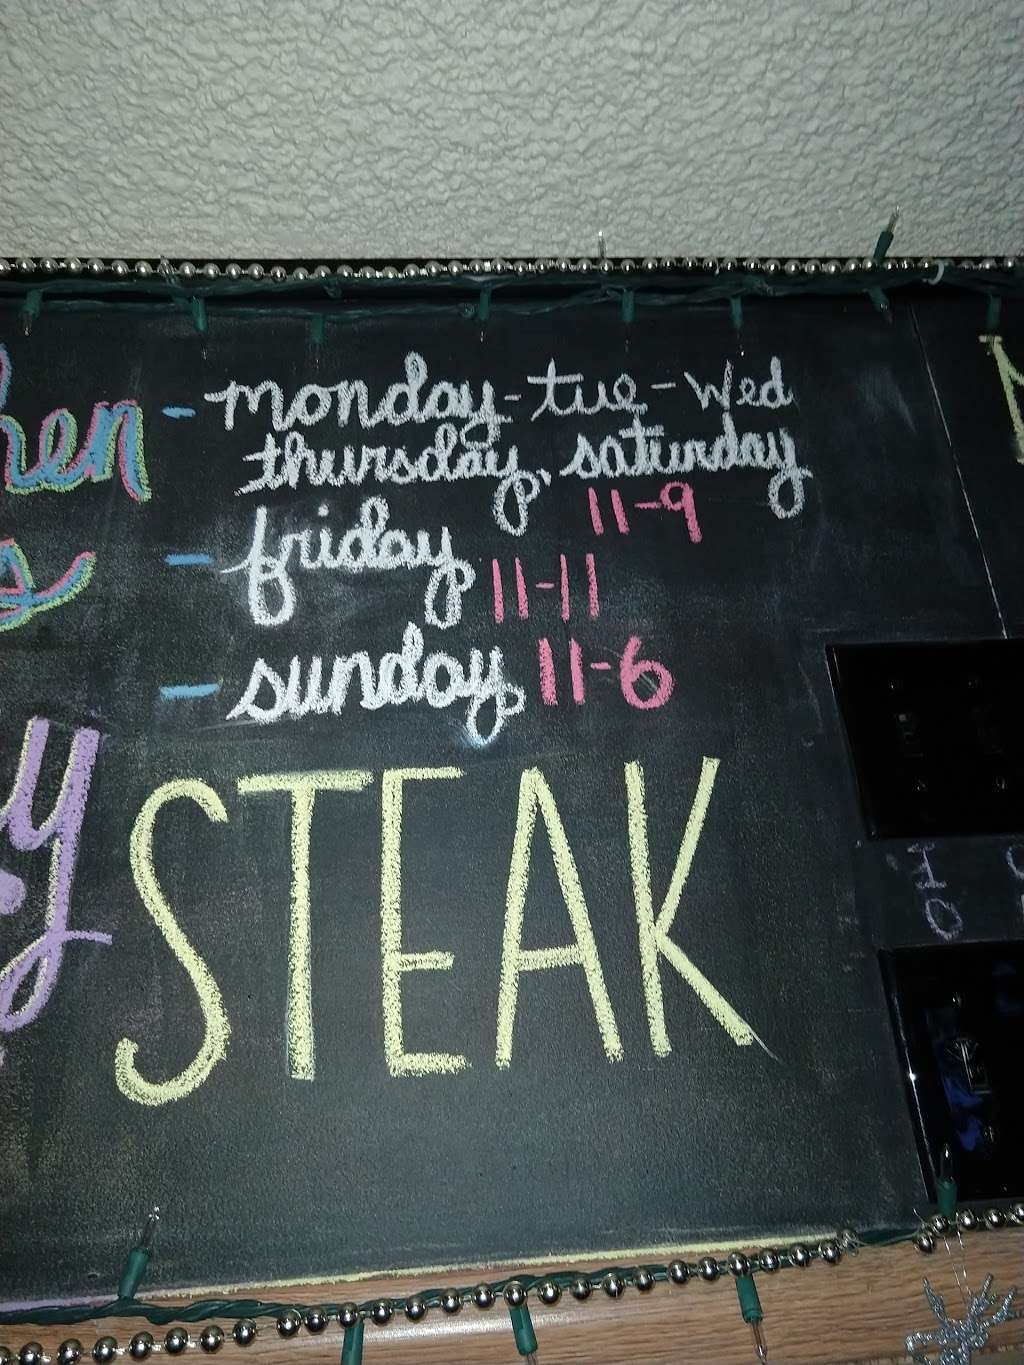 hen - monday - tue - Wed
thursday, saturday
11-9
s - friday 11-11
- sunday 11-6
y STEAK